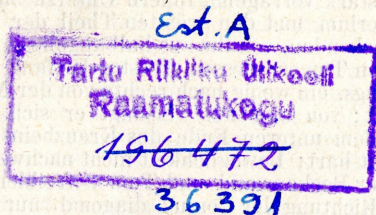 Est. A
Tartu Riikliku Ülikooli
Raamatukogu
196472
36391